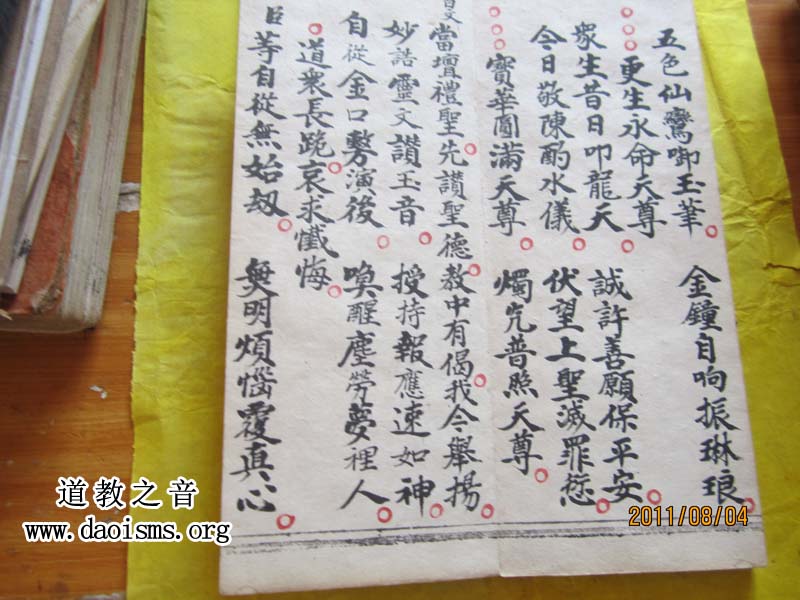 五色仙鸞啣玉華 金鐘自响振琳琅
更生永命天尊
眾生昔日叩龍天 誠許善願保平安
今日敬陳酌水儀 伏望上聖滅罪愆
寶華圓滿天尊 燭光普照天尊
當壇禮聖先讃聖德 教中有偈我今舉揚
妙誥靈文讃玉音 授持報應速如神
自從金口演後 喚醒塵勞夢裡人
道衆長跪哀求懺悔
臣等自從無始刼 無明煩惱覆真心
道教之音
www.daoisms.org
2011/08/04